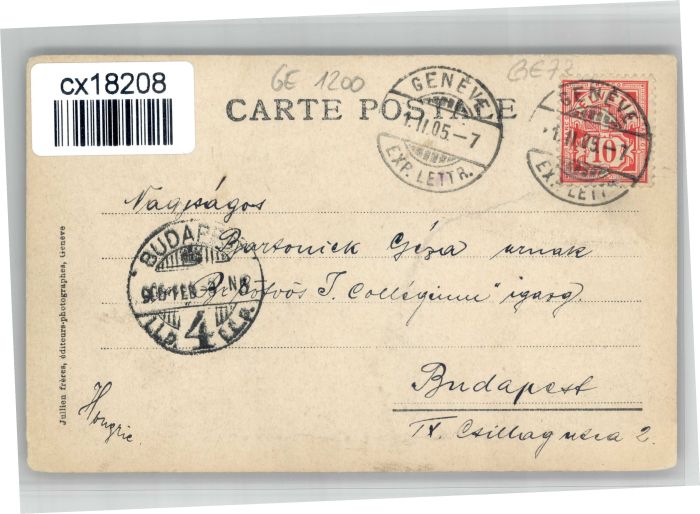 cx18208
GE 1200
GE72
CARTE POSTALE
GENÈVE
1.II.05-7
EXP. LETTR.
GENÈVE
1.II.05-7
EXP. LETTR.
10
Nagyságos
Bartoniek Géza urnak
"B. Eötvös J. Collégium" igazg.
BUDAPEST
4
Budapest
IX. Csillag utca 2.
Hongrie
Jullien frères, éditeurs-photographes, Genève